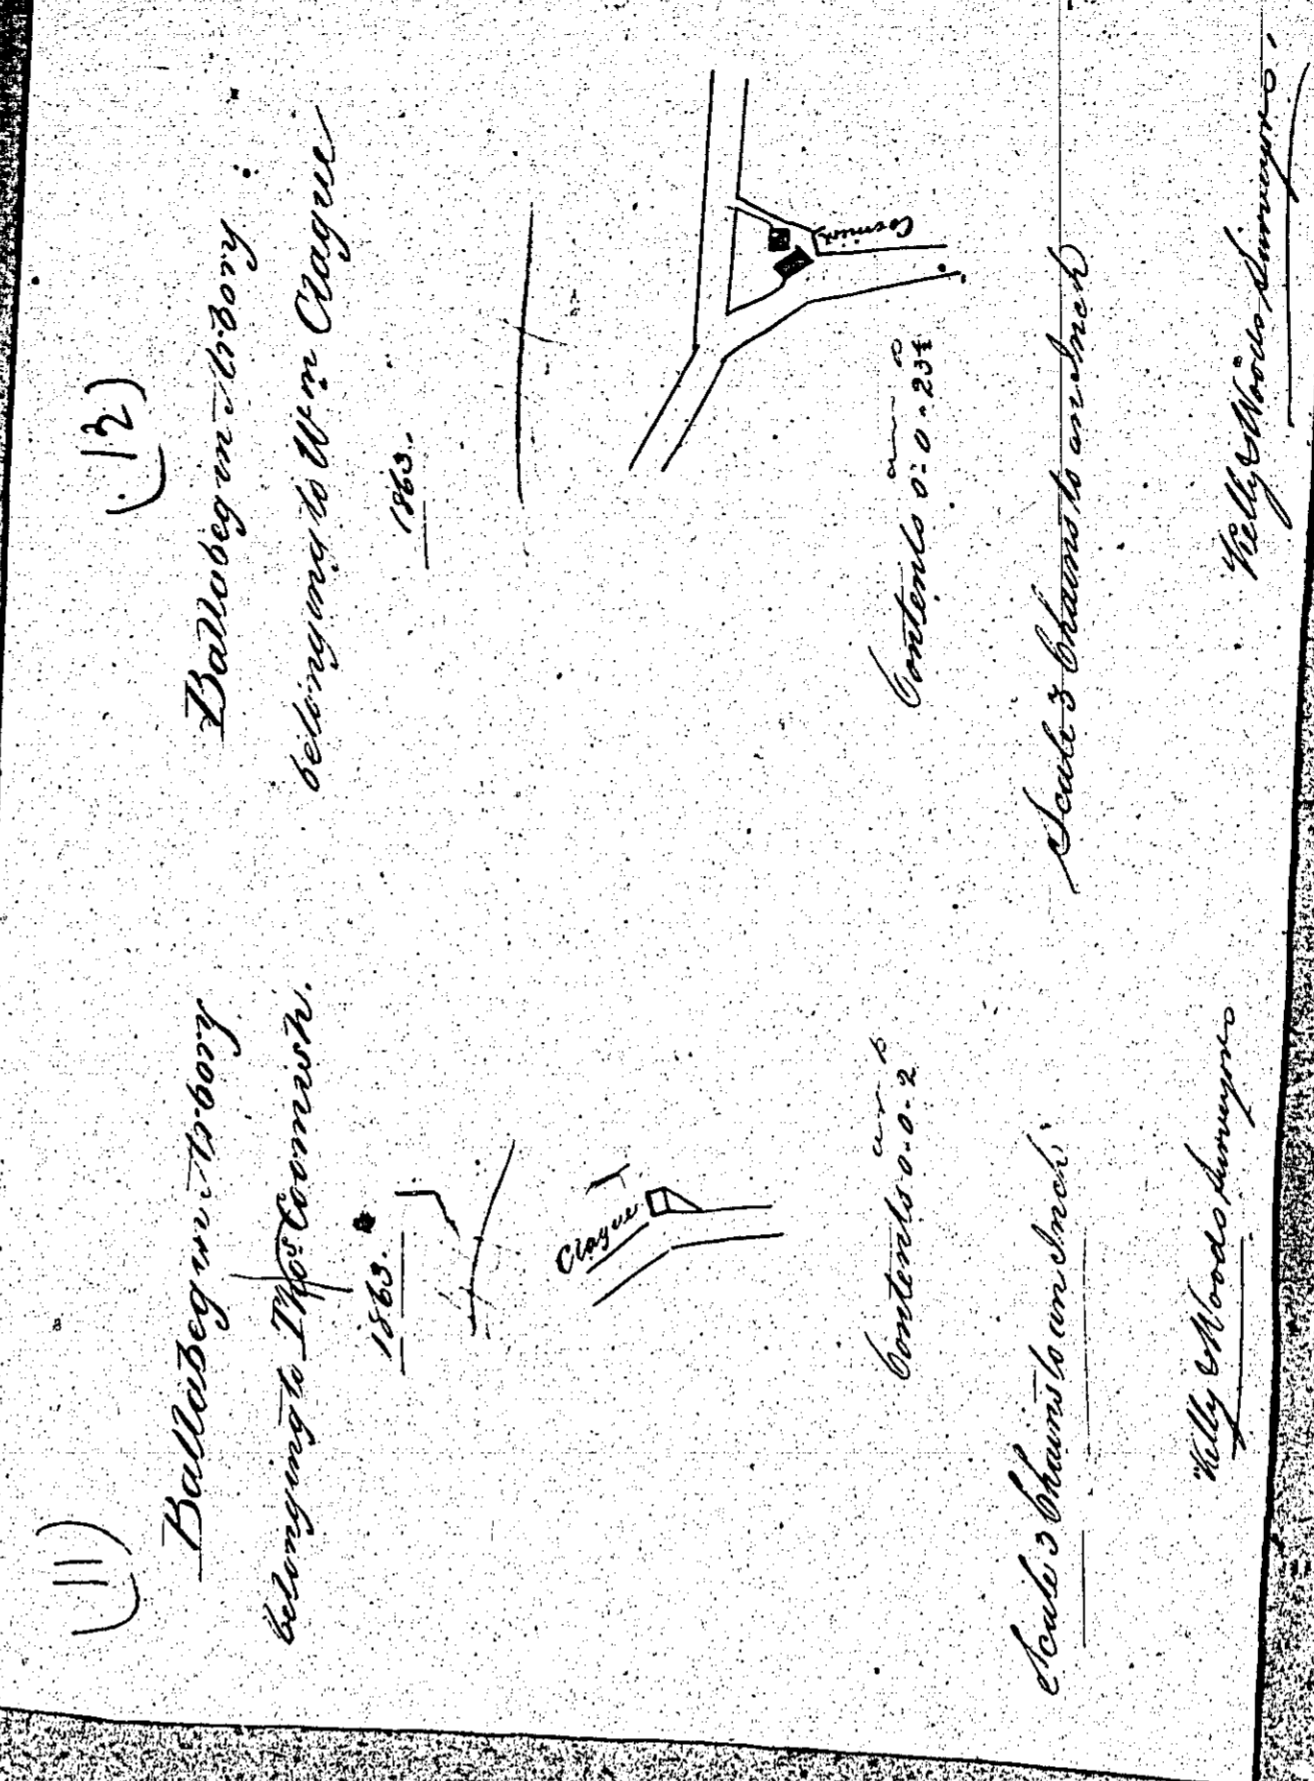 (11)
Ballabeg in Arbory
belonging to Thos Cornish.
1863.
Clague
a r p
Contents 0.0.2
Scale 3 Chains to an Inch
Kelly & Woods Surveyors
(12)
Ballabeg in Arbory
belonging to Wm Clague
1863.
Cornish
a r p
Contents 0.0.23½
Scale 3 Chains to an Inch
Kelly & Woods Surveyors.